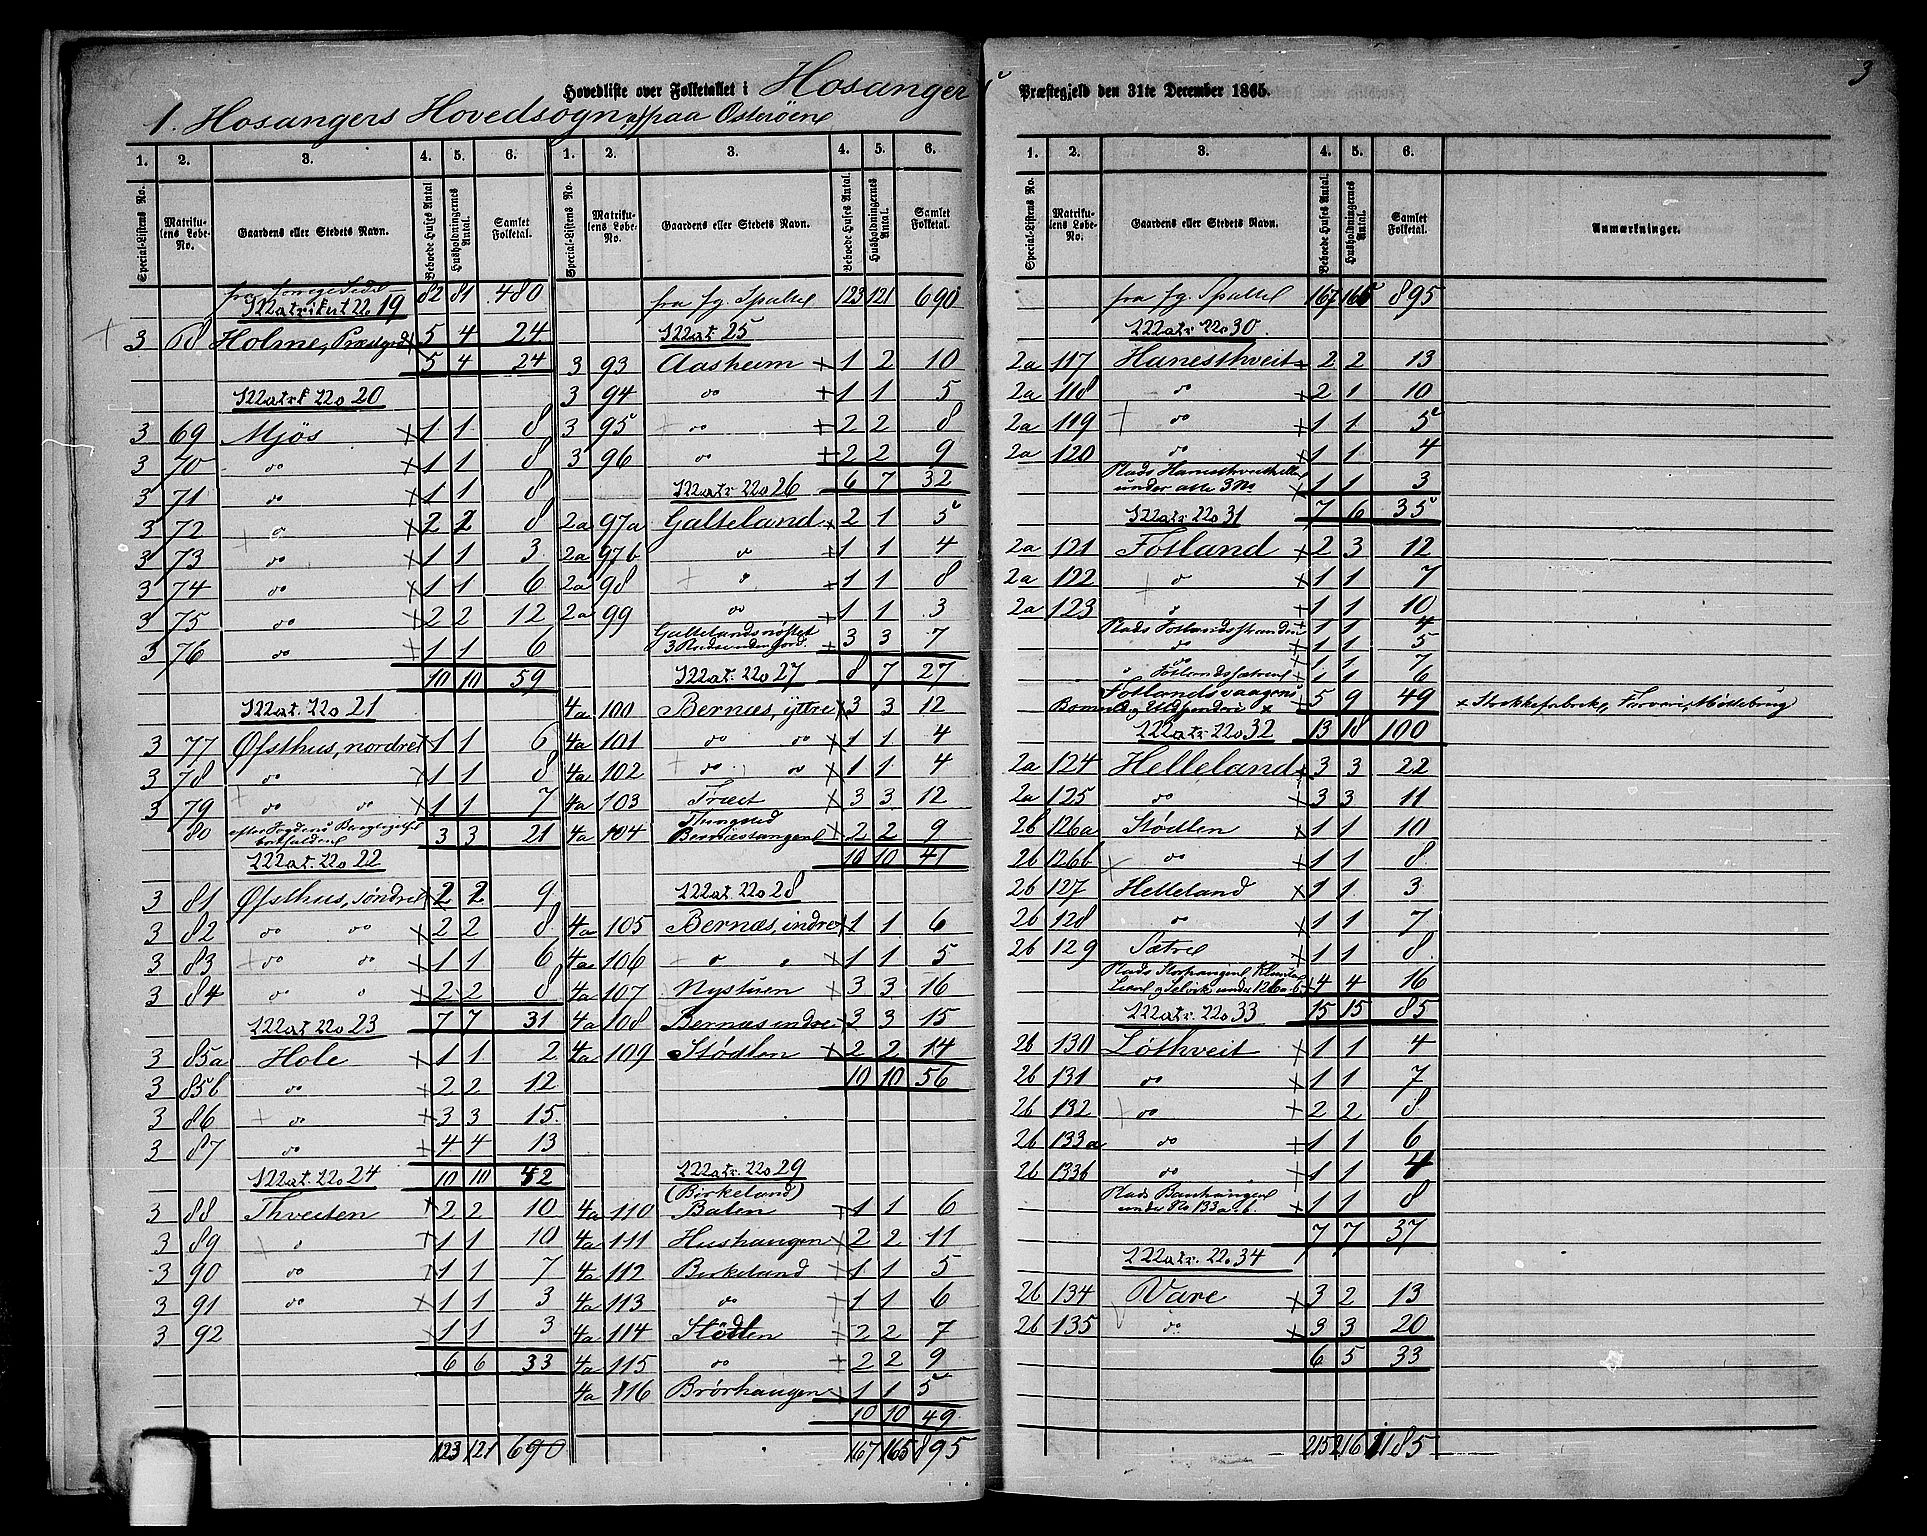 3
Hovedliste over Folketallet i Hosanger Præstegjeld den 31te December 1865.
1. Hosangers Hovedsogn, a) paa Osterøen
1. 2. 3. 4. 5. 6.
Special-Listens No. Matrikulens Løbe-No. Gaardens eller Stedets Navn. Beboede Huses Antal Husholdningernes Antal. Samlet Folketal.
fra forrige Side 82 81 480
Matrikul No 19
3 68 Holme, Præstgrd 5 4 24
5 4 24
Matrk No 20
3 69 Mjös × 1 1 8
3 70 do × 1 1 8
3 71 do × 1 1 8
3 72 do × 2 2 8
3 73 do × 1 1 3
3 74 do × 1 1 6
3 75 do × 2 2 12
3 76 do + 1 1 6
10 10 59
Mat. No 21
3 77 Øfsthus, nordre × 1 1 6
3 78 do × 1 1 8
3 79 do do × 1 1 7
80 3 3 21
Mat. No 22
3 81 Øfsthus, söndre × 2 2 9
3 82 do do × 2 2 8
3 83 do do × 1 1 6
3 84 do do × 2 2 8
Mat. No 23 7 7 31
3 85a Hole × 1 1 2
3 85b do × 2 2 12
3 86 do + 3 3 15
3 87 do + 4 4 13
Mat. No 24 10 10 42
3 88 Thveiten × 2 2 10
3 89 do 1 1 10
3 90 do 1 1 7
3 91 do × 1 1 3
3 92 1 1 3
6 6 33
123 121 690
1. 2. 3. 4. 5. 6.
Special-Listens No. Matrikulens Løbe-No. Gaardens eller Stedets Navn. Beboede Huses Antal. Husholdningernes Antal. Samlet Folketal.
fra fg. Spalte 123 121 690
Mat 25
3 93 Aasheim + 1 2 10
3 94 do + 1 1 5
3 95 do + 2 2 8
3 96 do + 2 2 9
Matr No 26 6 7 32
2a 97a Galteland × 2 1 5
2a 97b do + 1 1 4
2a 98 do + 1 1 8
2a 99 do + 1 1 3
Galtelandsnöstet
3 + 3 3 7
Mat. No 27 8 7 27
4a 100 Bernæs, yttre × 3 3 12
4a 101 do do × 1 1 4
4a 102 do do × 1 1 4
4a 103 Træet × 3 3 12
Thingsted
4a 104 Bernæstangen × 2 2 9
10 10 41
Mat. No 28
4a 105 Bernæs, indre × 1 1 6
4a 106 do do × 1 1 5
4a 107 Nystuen × 3 3 16
4a 108 Bernæs indre × 3 3 15
4a 109 Stödlen × 2 2 14
10 10 56
Matr. No 29
(Birkeland)
4a 110 Balen + 1 1 6
4a 111 Hushaugen × 2 2 11
4a 112 Birkeland 1 1 5
4a 113 do 1 1 6
4a 114 Stödlen 2 2 7
4a 115 do + 2 2 9
4a 116 Brörhaugen × 1 1 5
10 10 49
167 165 895
1. 2. 3. 4. 5. 6.
Special-Listens No. Matrikulens Løbe-No. Gaardens eller Stedets Navn. Beboede Huses Antal. Husholdningernes Antal. Samlet Folketal. Anmærkninger.
fra fg. Spalte 167 165 895
Matr No 30.
2a 117 Hanesthveit 2 2 13
2a 118 do × 2 1 10
2a 119 do × 1 1 5
2a 120 do × 1 1 4
Plads
under alle 3 No × 1 1 3
Matr. No 31 7 6 35
2a 121 Fotland + 2 3 12
2a 122 do × 1 1 7
2a 123 do + 1 1 10
Plads Fotlandsstranden + 1 1 4
do × 1 1 5
do × 1 1 7
do Fotlandssætren + 1 1 6
Fotlandsvaagens
× 5 9 49 × Strikkefabrik, Farveri, Möllebrug
Matr No 32 13 18 100
2a 124 Helleland × 3 3 22
2a 125 do × 3 3 11
2b 126a Stödlen × 1 1 10
2b 126b do × 1 1 8
2b 127 Helleland × 1 1 3
2b 128 do × 1 1 7
2b 129 Sætre × 1 1 8
Plads
under 126a-b. 4 4 16
Matr. No 33 15 15 85
2b 130 Löthveit × 1 1 4
2b 131 do × 1 1 7
2b 132 do × 2 2 8
2b 133a do + 1 1 6
2b 133b do 1 1 4
Plads Bauhaugen
under No 133a-b. × 1 1 8
7 7 37
Matr. No 34
2b 134 Vare × 3 2 13
2b 135 do × 3 3 20
6 5 33
215 216 1185